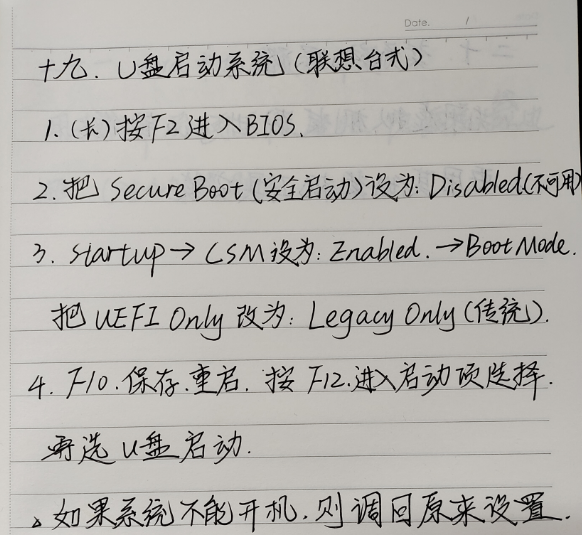 Date.    /
十九. U盘启动系统(联想台式)
1. (长)按F2进入BIOS.
2. 把 Secure Boot (安全启动)设为: Disabled(不可用)
3. startup→CSM设为: Enabled. →Boot Mode.
把 UEFI Only 改为: Legacy Only (传统).
4. F10.保存.重启. 按 F12.进入启动项选择.
再选U盘启动.
。如果系统不能开机.则调回原来设置.